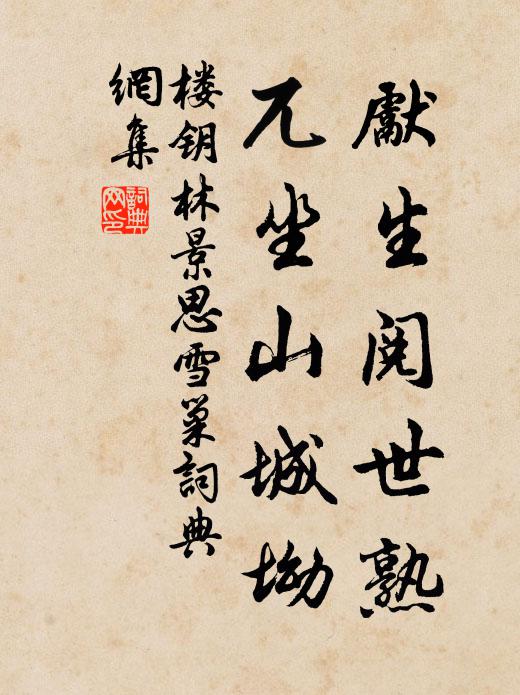 獻生閱世熟
兀坐山城坳
楼钥林景思雪巢詞典
網集
詞典
网印